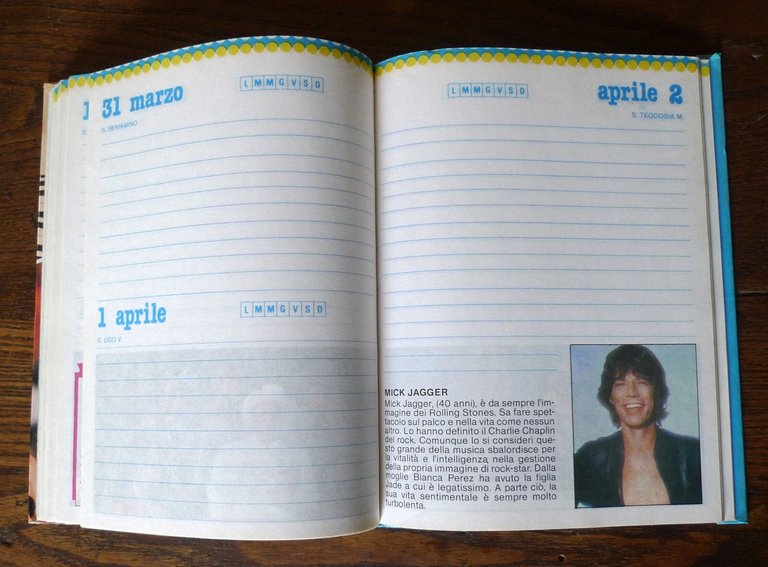 31 marzo
L M M G V S D
S. BENIAMINO
1 aprile
L M M G V S D
S. UGO V.
L M M G V S D
aprile 2
S. TEODOSIA M.
MICK JAGGER
Mick Jagger, (40 anni), è da sempre l'im-
magine dei Rolling Stones. Sa fare spet-
tacolo sul palco e nella vita come nessun
altro. Lo hanno definito il Charlie Chaplin
del rock. Comunque lo si consideri que-
sto grande della musica sbalordisce per
la vitalità e l'intelligenza nella gestione
della propria immagine di rock-star. Dalla
moglie Bianca Perez ha avuto la figlia
Jade a cui è legatissimo. A parte ciò, la
sua vita sentimentale è sempre molto
turbolenta.